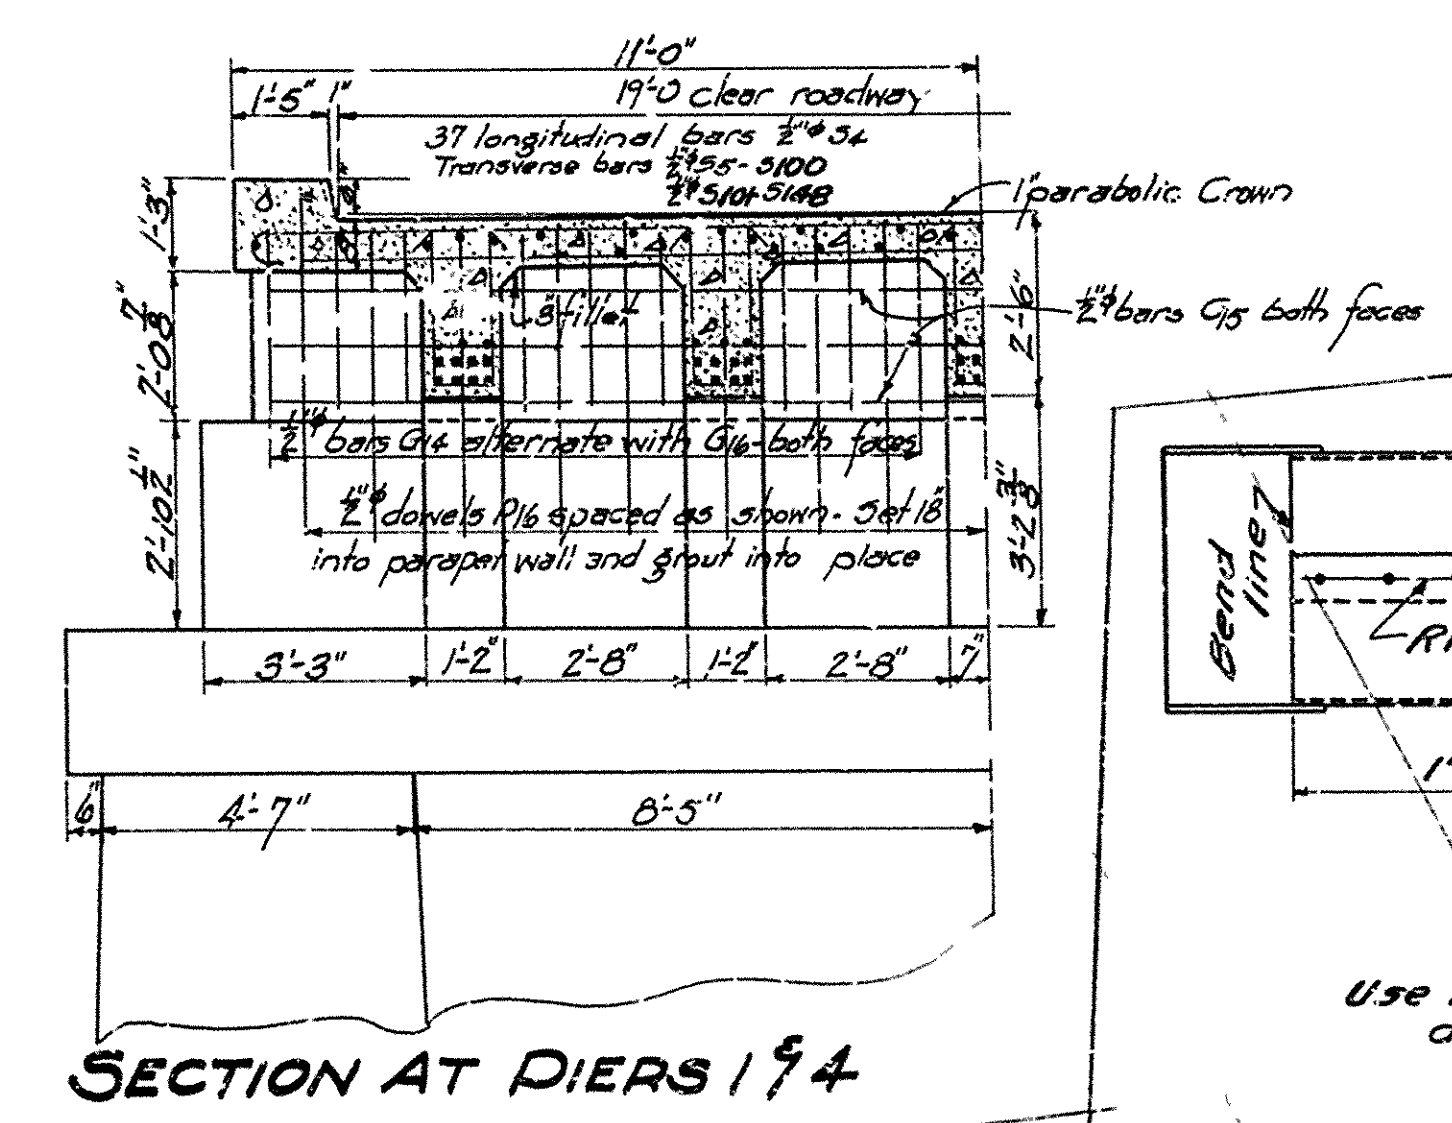 11'-0"
1'-5" 1" 19'-0 clear roadway
37 longitudinal bars ½"ϕ S4
Transverse bars ½"ϕ S5-S100
½"ϕ S101-S148
1" parabolic Crown
1'-3"
8"
8"
2'-0⅞"
3" fillet
2'-6"
½"ϕ bars G15 both faces
½"ϕ bars G14 alternate with G16-both faces
2'-10½"
½"ϕ dowels P16 spaced as shown. Set 18"
into parapet wall and grout into place
3'-2⅜"
3'-3" 1'-2" 2'-8" 1'-2" 2'-8" 7"
6" 4'-7" 8'-5"
SECTION AT PIERS 1 & 4
Bend
line
Use